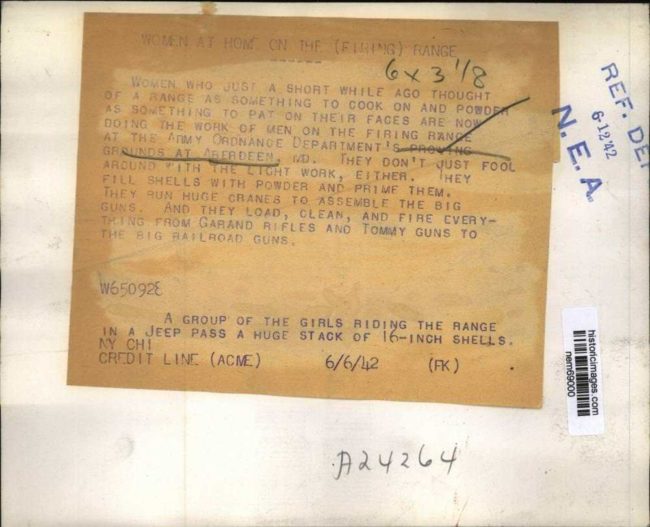 WOMEN AT HOME ON THE (FIRING) RANGE
------
6 x 3 1/8
WOMEN WHO JUST A SHORT WHILE AGO THOUGHT
OF A RANGE AS SOMETHING TO COOK ON AND POWDER
AS SOMETHING TO PAT ON THEIR FACES ARE NOW
DOING THE WORK OF MEN ON THE FIRING RANGE
AT THE ARMY ORDNANCE DEPARTMENT'S PROVING
GROUNDS AT ABERDEEN, MD. THEY DON'T JUST FOOL
AROUND WITH THE LIGHT WORK, EITHER. THEY
FILL SHELLS WITH POWDER AND PRIME THEM.
THEY RUN HUGE CRANES TO ASSEMBLE THE BIG
GUNS. AND THEY LOAD, CLEAN, AND FIRE EVERY-
THING FROM GARAND RIFLES AND TOMMY GUNS TO
THE BIG RAILROAD GUNS.
W650928
A GROUP OF THE GIRLS RIDING THE RANGE
IN A JEEP PASS A HUGE STACK OF 16-INCH SHELLS.
NY CHI
CREDIT LINE (ACME) 6/6/42 (FK)
REF. DE
6-12-42
N.E.A.
historicimages.com
nem69000
A24264